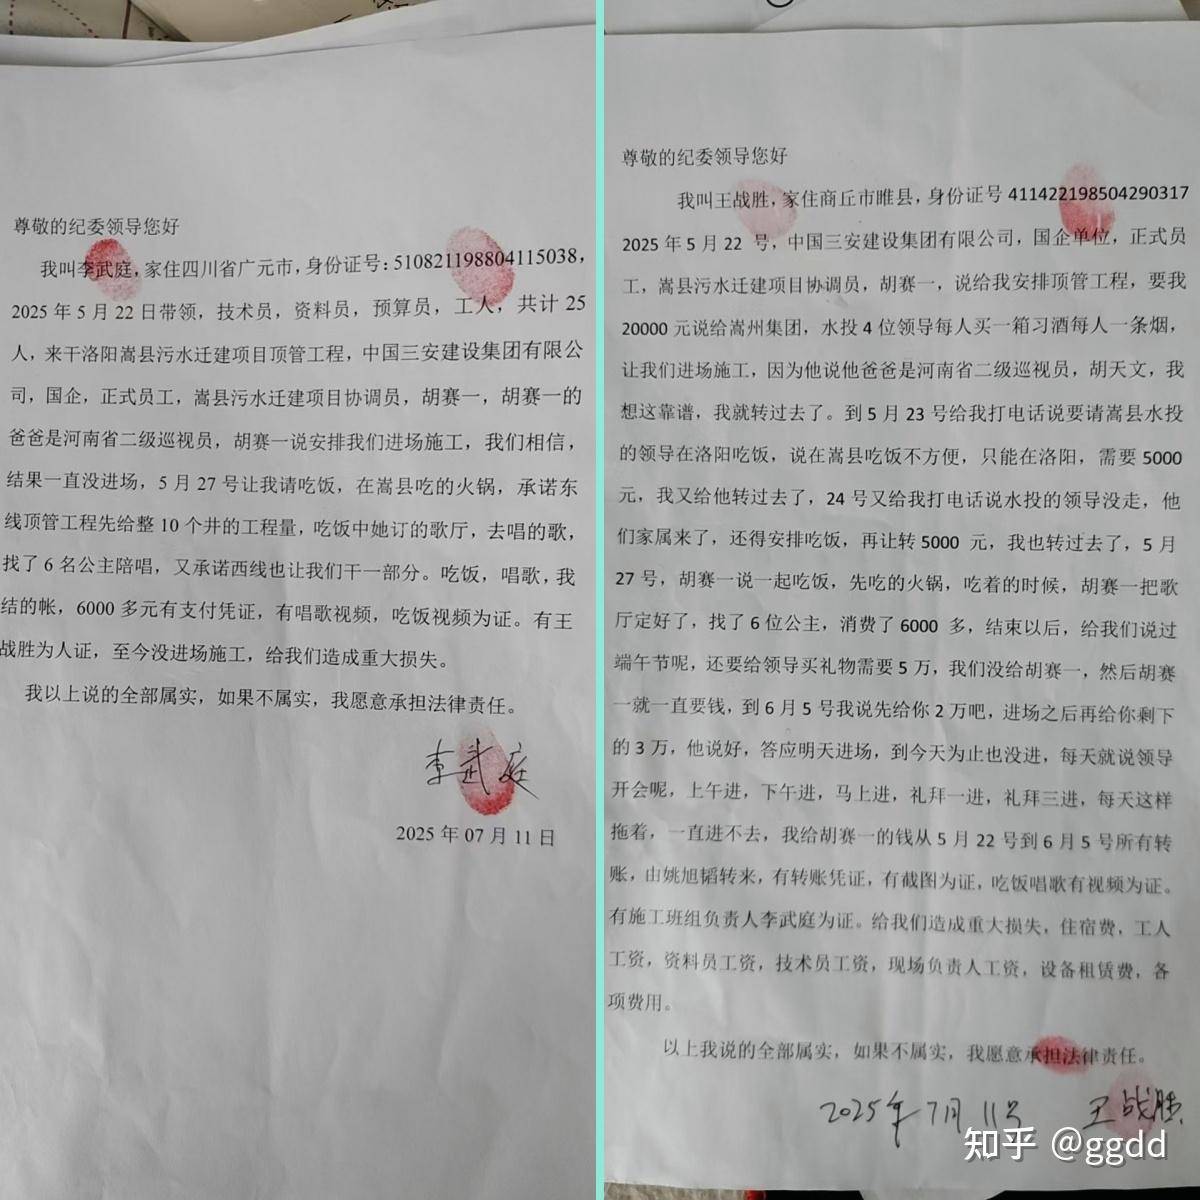 尊敬的纪委领导您好
我叫李武庭，家住四川省广元市，身份证号：510821198804115038，
2025年5月22日带领，技术员，资料员，预算员，工人，共计25
人，来干洛阳嵩县污水迁建项目顶管工程，中国三安建设集团有限公
司，国企，正式员工，嵩县污水迁建项目协调员，胡赛一，胡赛一的
爸爸是河南省二级巡视员，胡赛一说安排我们进场施工，我们相信，
结果一直没进场，5月27号让我请吃饭，在嵩县吃的火锅，承诺东
线顶管工程先给整10个井的工程量，吃饭中她订的歌厅，去唱的歌，
找了6名公主陪唱，又承诺西线也让我们干一部分。吃饭，唱歌，我
结的帐，6000多元有支付凭证，有唱歌视频，吃饭视频为证。有王
战胜为人证，至今没进场施工，给我们造成重大损失。
我以上说的全部属实，如果不属实，我愿意承担法律责任。
李武庭
2025年07月11日
尊敬的纪委领导您好
我叫王战胜，家住商丘市睢县，身份证号411422198504290317
2025年5月22 号，中国三安建设集团有限公司，国企单位，正式员
工，嵩县污水迁建项目协调员，胡赛一，说给我安排顶管工程，要我
20000元说给嵩州集团，水投4位领导每人买一箱习酒每人一条烟，
让我们进场施工，因为他说他爸爸是河南省二级巡视员，胡天文，我
想这靠谱，我就转过去了。到5月23号给我打电话说要请嵩县水投
的领导在洛阳吃饭，说在嵩县吃饭不方便，只能在洛阳，需要5000
元，我又给他转过去了，24号又给我打电话说水投的领导没走，他
们家属来了，还得安排吃饭，再让转5000 元，我也转过去了，5月
27号，胡赛一说一起吃饭，先吃的火锅，吃着的时候，胡赛一把歌
厅定好了，找了6位公主，消费了6000 多，结束以后，给我们说过
端午节呢，还要给领导买礼物需要5万，我们没给胡赛一，然后胡赛
一就一直要钱，到6月5号我说先给你2万吧，进场之后再给你剩下
的3万，他说好，答应明天进场，到今天为止也没进，每天就说领导
开会呢，上午进，下午进，马上进，礼拜一进，礼拜三进，每天这样
拖着，一直进不去，我给胡赛一的钱从5月22号到6月5号所有转
账，由姚旭韬转来，有转账凭证，有截图为证，吃饭唱歌有视频为证。
有施工班组负责人李武庭为证。给我们造成重大损失，住宿费，工人
工资，资料员工资，技术员工资，现场负责人工资，设备租赁费，各
项费用。
以上我说的全部属实，如果不属实，我愿意承担法律责任。
2025年7月11号 王战胜
知乎 @ggdd